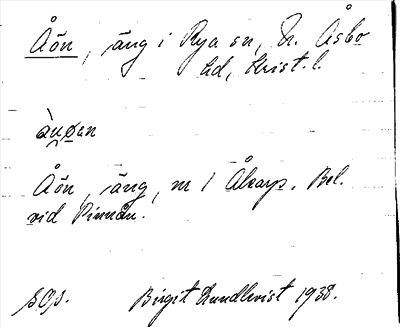 Åön, äng i Rya sn, N. Åsbo
hd, Krist. l.
Åön, äng, m / Åkarp. Bel.
vid Pinnån.
sOp. Birgit Lundkvist 1938.